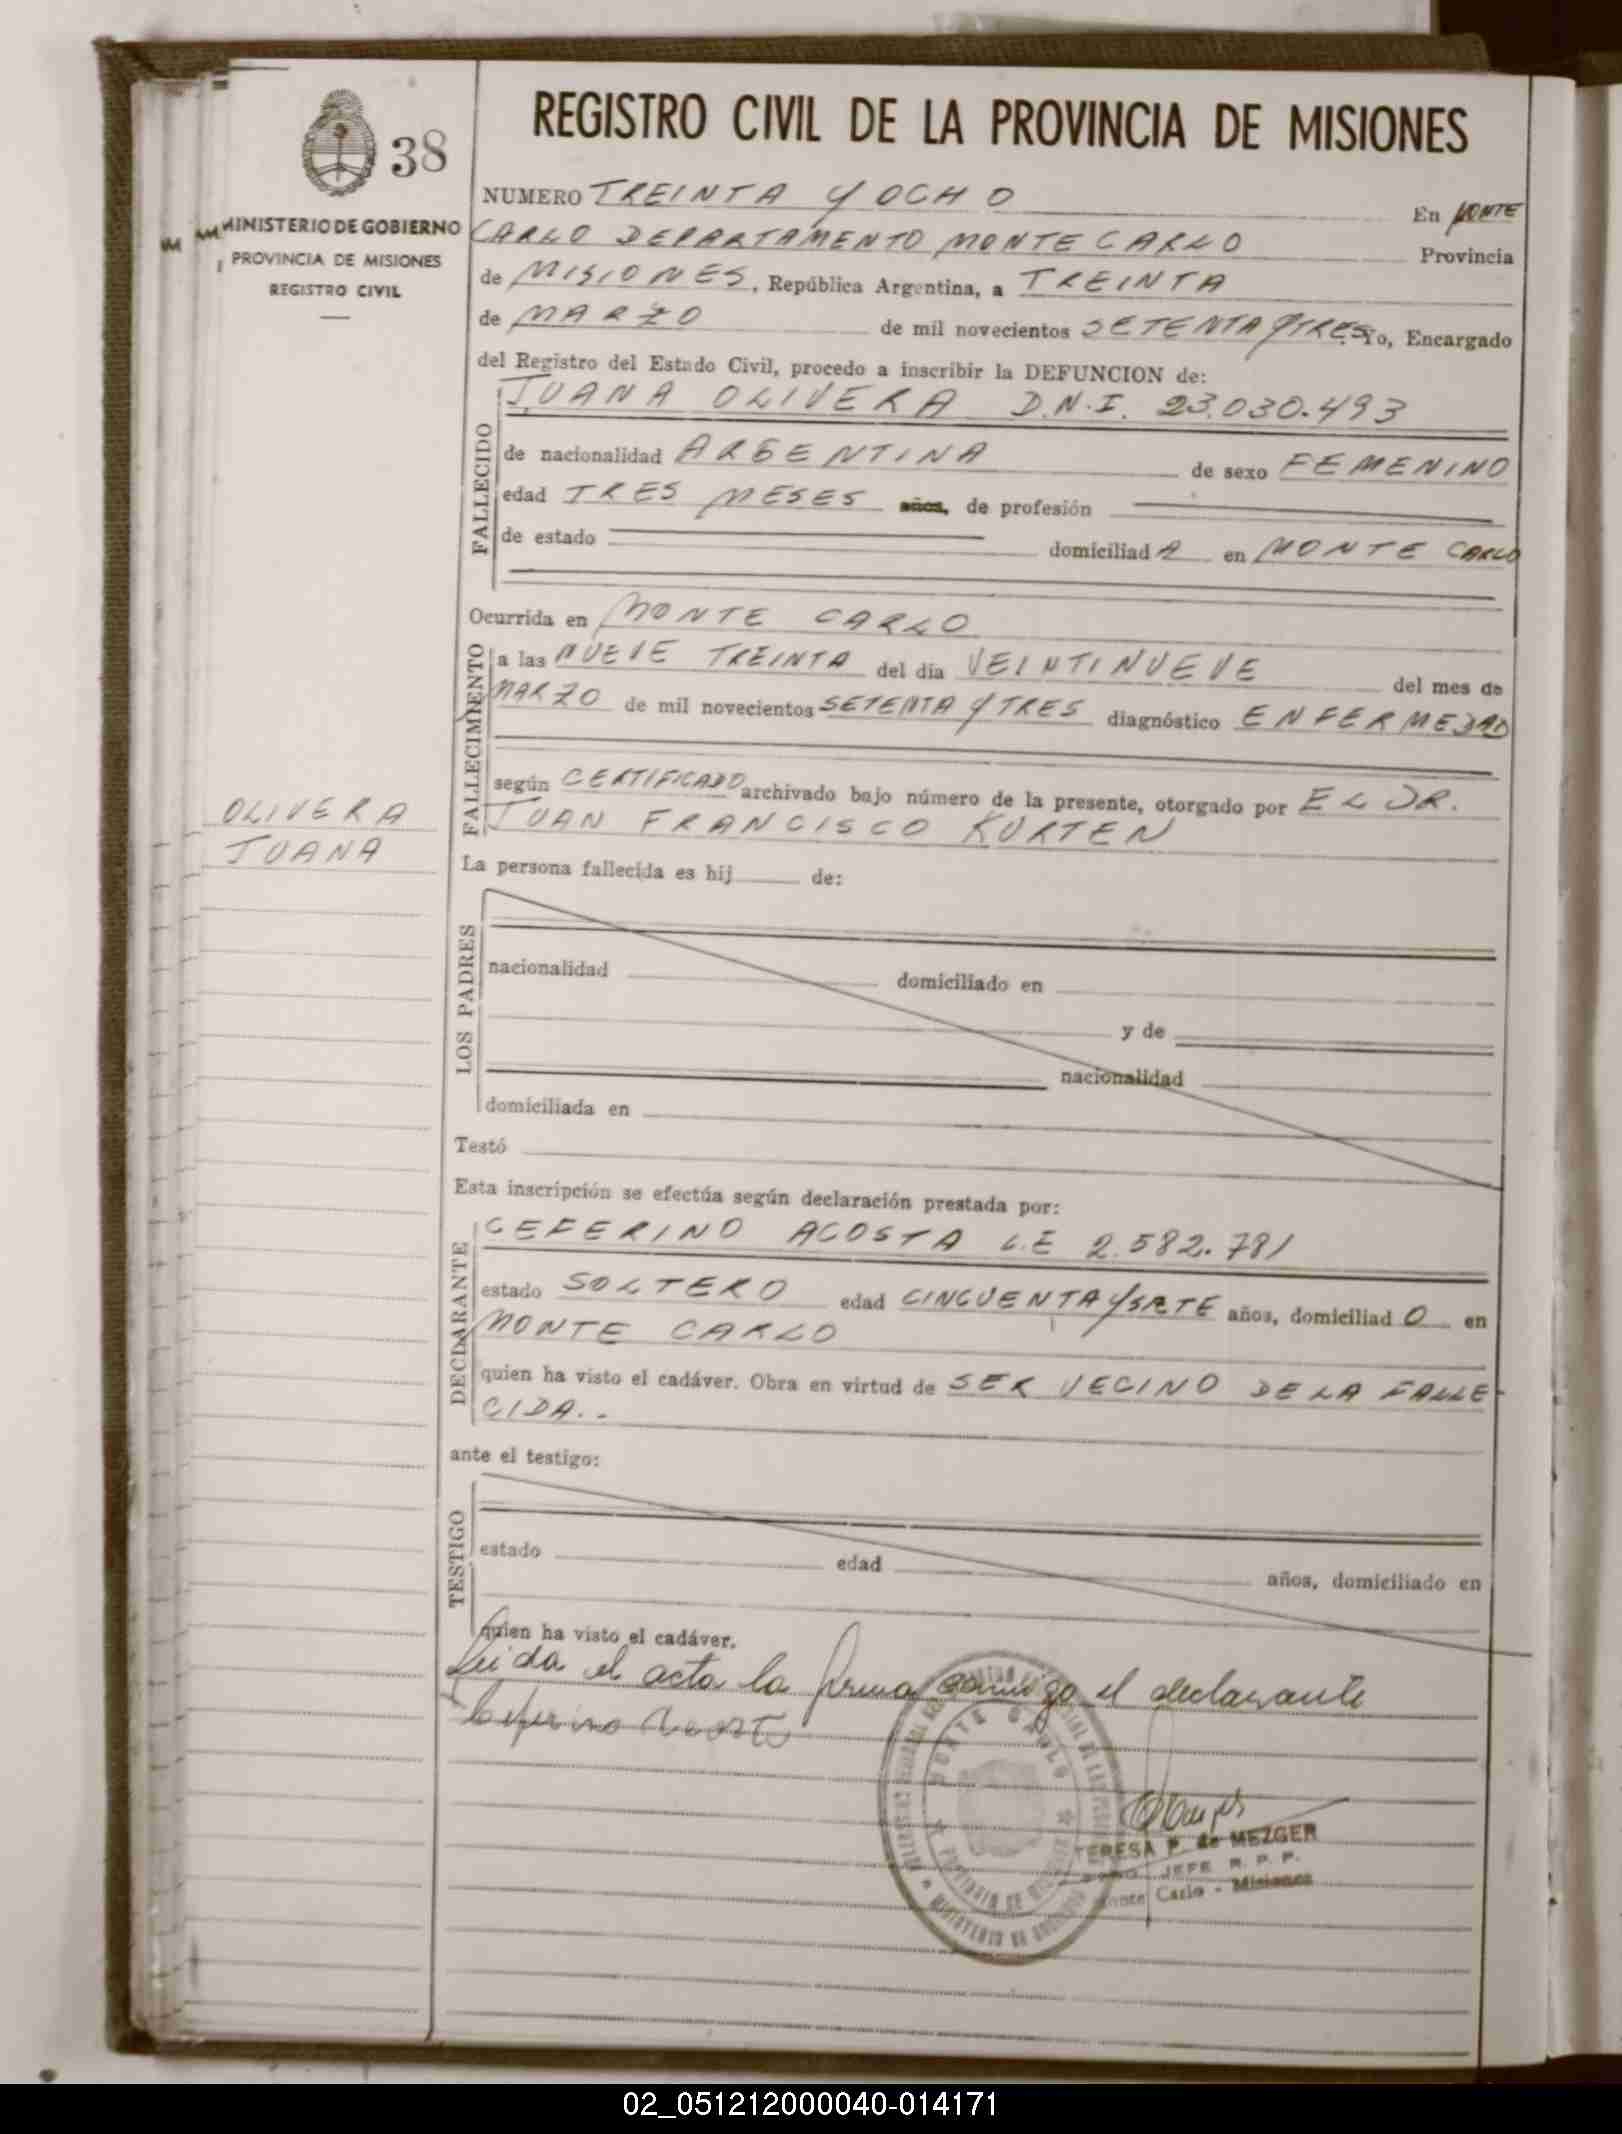 REGISTRO CIVIL DE LA PROVINCIA DE MISIONES
38
MINISTERIO DE GOBIERNO
PROVINCIA DE MISIONES
REGISTRO CIVIL
NUMERO TREINTA Y OCHO En MONTE
CARLO DEPARTAMENTO MONTE CARLO Provincia
de MISIONES, República Argentina, a TREINTA
de MARZO de mil novecientos SETENTA Y TRES Yo, Encargado
del Registro del Estado Civil, procedo a inscribir la DEFUNCION de:
JUANA OLIVERA D.N.I. 23.030.493
FALLECIDO
de nacionalidad ARGENTINA de sexo FEMENINO
edad TRES MESES años, de profesión
de estado domiciliad A en MONTE CARLO
Ocurrida en MONTE CARLO
FALLECIMIENTO
a las NUEVE TREINTA del día VEINTINUEVE del mes de
MARZO de mil novecientos SETENTA Y TRES diagnóstico ENFERMEDAD
según CERTIFICADO archivado bajo número de la presente, otorgado por EL DR.
JUAN FRANCISCO KURTEN
OLIVERA
JUANA
La persona fallecida es hij de:
LOS PADRES
nacionalidad domiciliado en
y de
nacionalidad
domiciliada en
Testó
Esta inscripción se efectúa según declaración prestada por:
DECLARANTE
CEFERINO ACOSTA L.E 2.582.781
estado SOLTERO edad CINCUENTA Y SIETE años, domiciliad O en
MONTE CARLO
quien ha visto el cadáver. Obra en virtud de SER VECINO DE LA FALLE-
CIDA..
ante el testigo:
TESTIGO
estado edad años, domiciliado en
quien ha visto el cadáver.
Leida el acta la firma conmigo el declarante
Ceferino Acosta
MONTE CARLO
TERESA P. de MEZGER
JEFE R. P. P.
Monte Carlo - Misiones
02_051212000040-014171